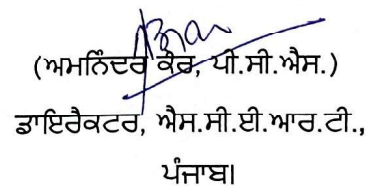 (ਅਮਨਿੰਦਰ ਕੌਰ, ਪੀ.ਸੀ.ਐਸ.)
ਡਾਇਰੈਕਟਰ, ਐਸ.ਸੀ.ਈ.ਆਰ.ਟੀ.,
ਪੰਜਾਬ।